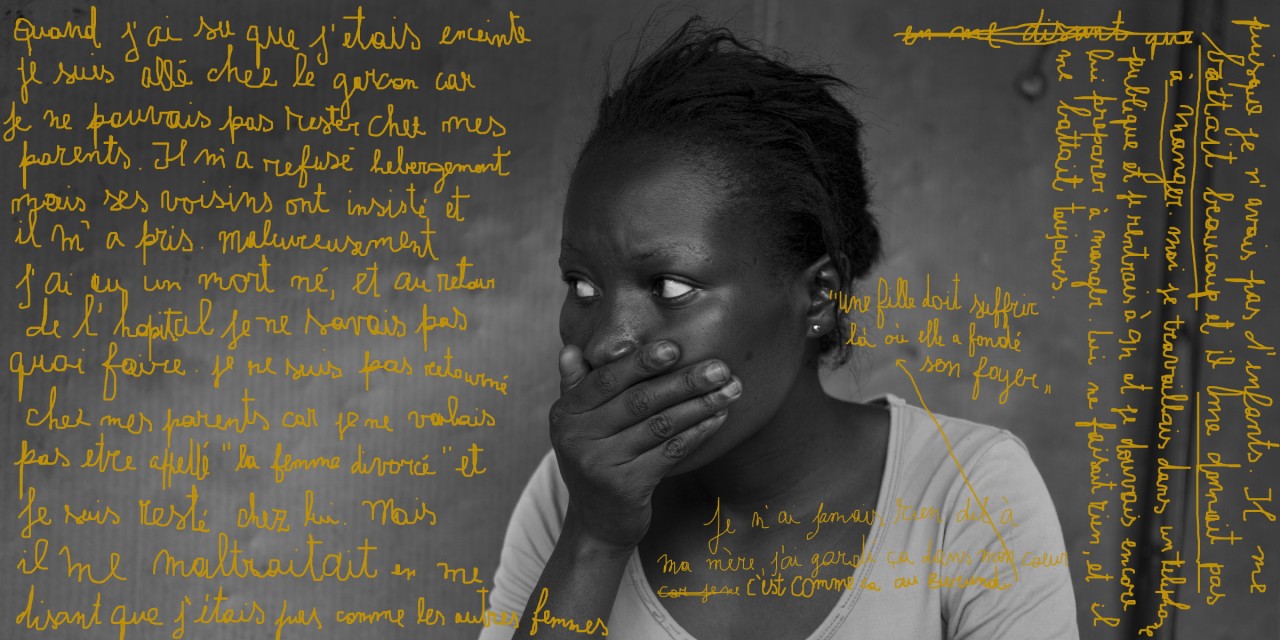 Quand j'ai su que j'etais enceinte
je suis allé chez le garcon car
Je ne pouvais pas rester chez mes
parents. Il m'a refusé hebergement
mais ses voisins ont insisté et
il m'a pris. Maleureusement
j'ai eu un mort né, et au retour
de l'hopital je ne savais pas
quoi faire. je ne suis pas retourné
chez mes parents car je ne voulais
pas etre appellé "la femme divorcé" et
je suis resté chez lui. Mais
il me maltraitait en me
disant que j'étais pas comme les autres femmes
en me disant que
puisque je n'avais pas d'enfants. Il me
battait beaucoup et il me donnait pas
à manger. moi je travaillais dans un
publique et je rentrais à 9h et je douvais encore
lui preparer à manger. Lui ne faisait rien, et il
me battait toujours.
"une fille doit suffrir
là où elle a fondé
son foyer"
Je n'ai jamais rien dit à
ma mère, j'ai gardé ça dans mon coeur
car je ne c'est comme ça au Burundi